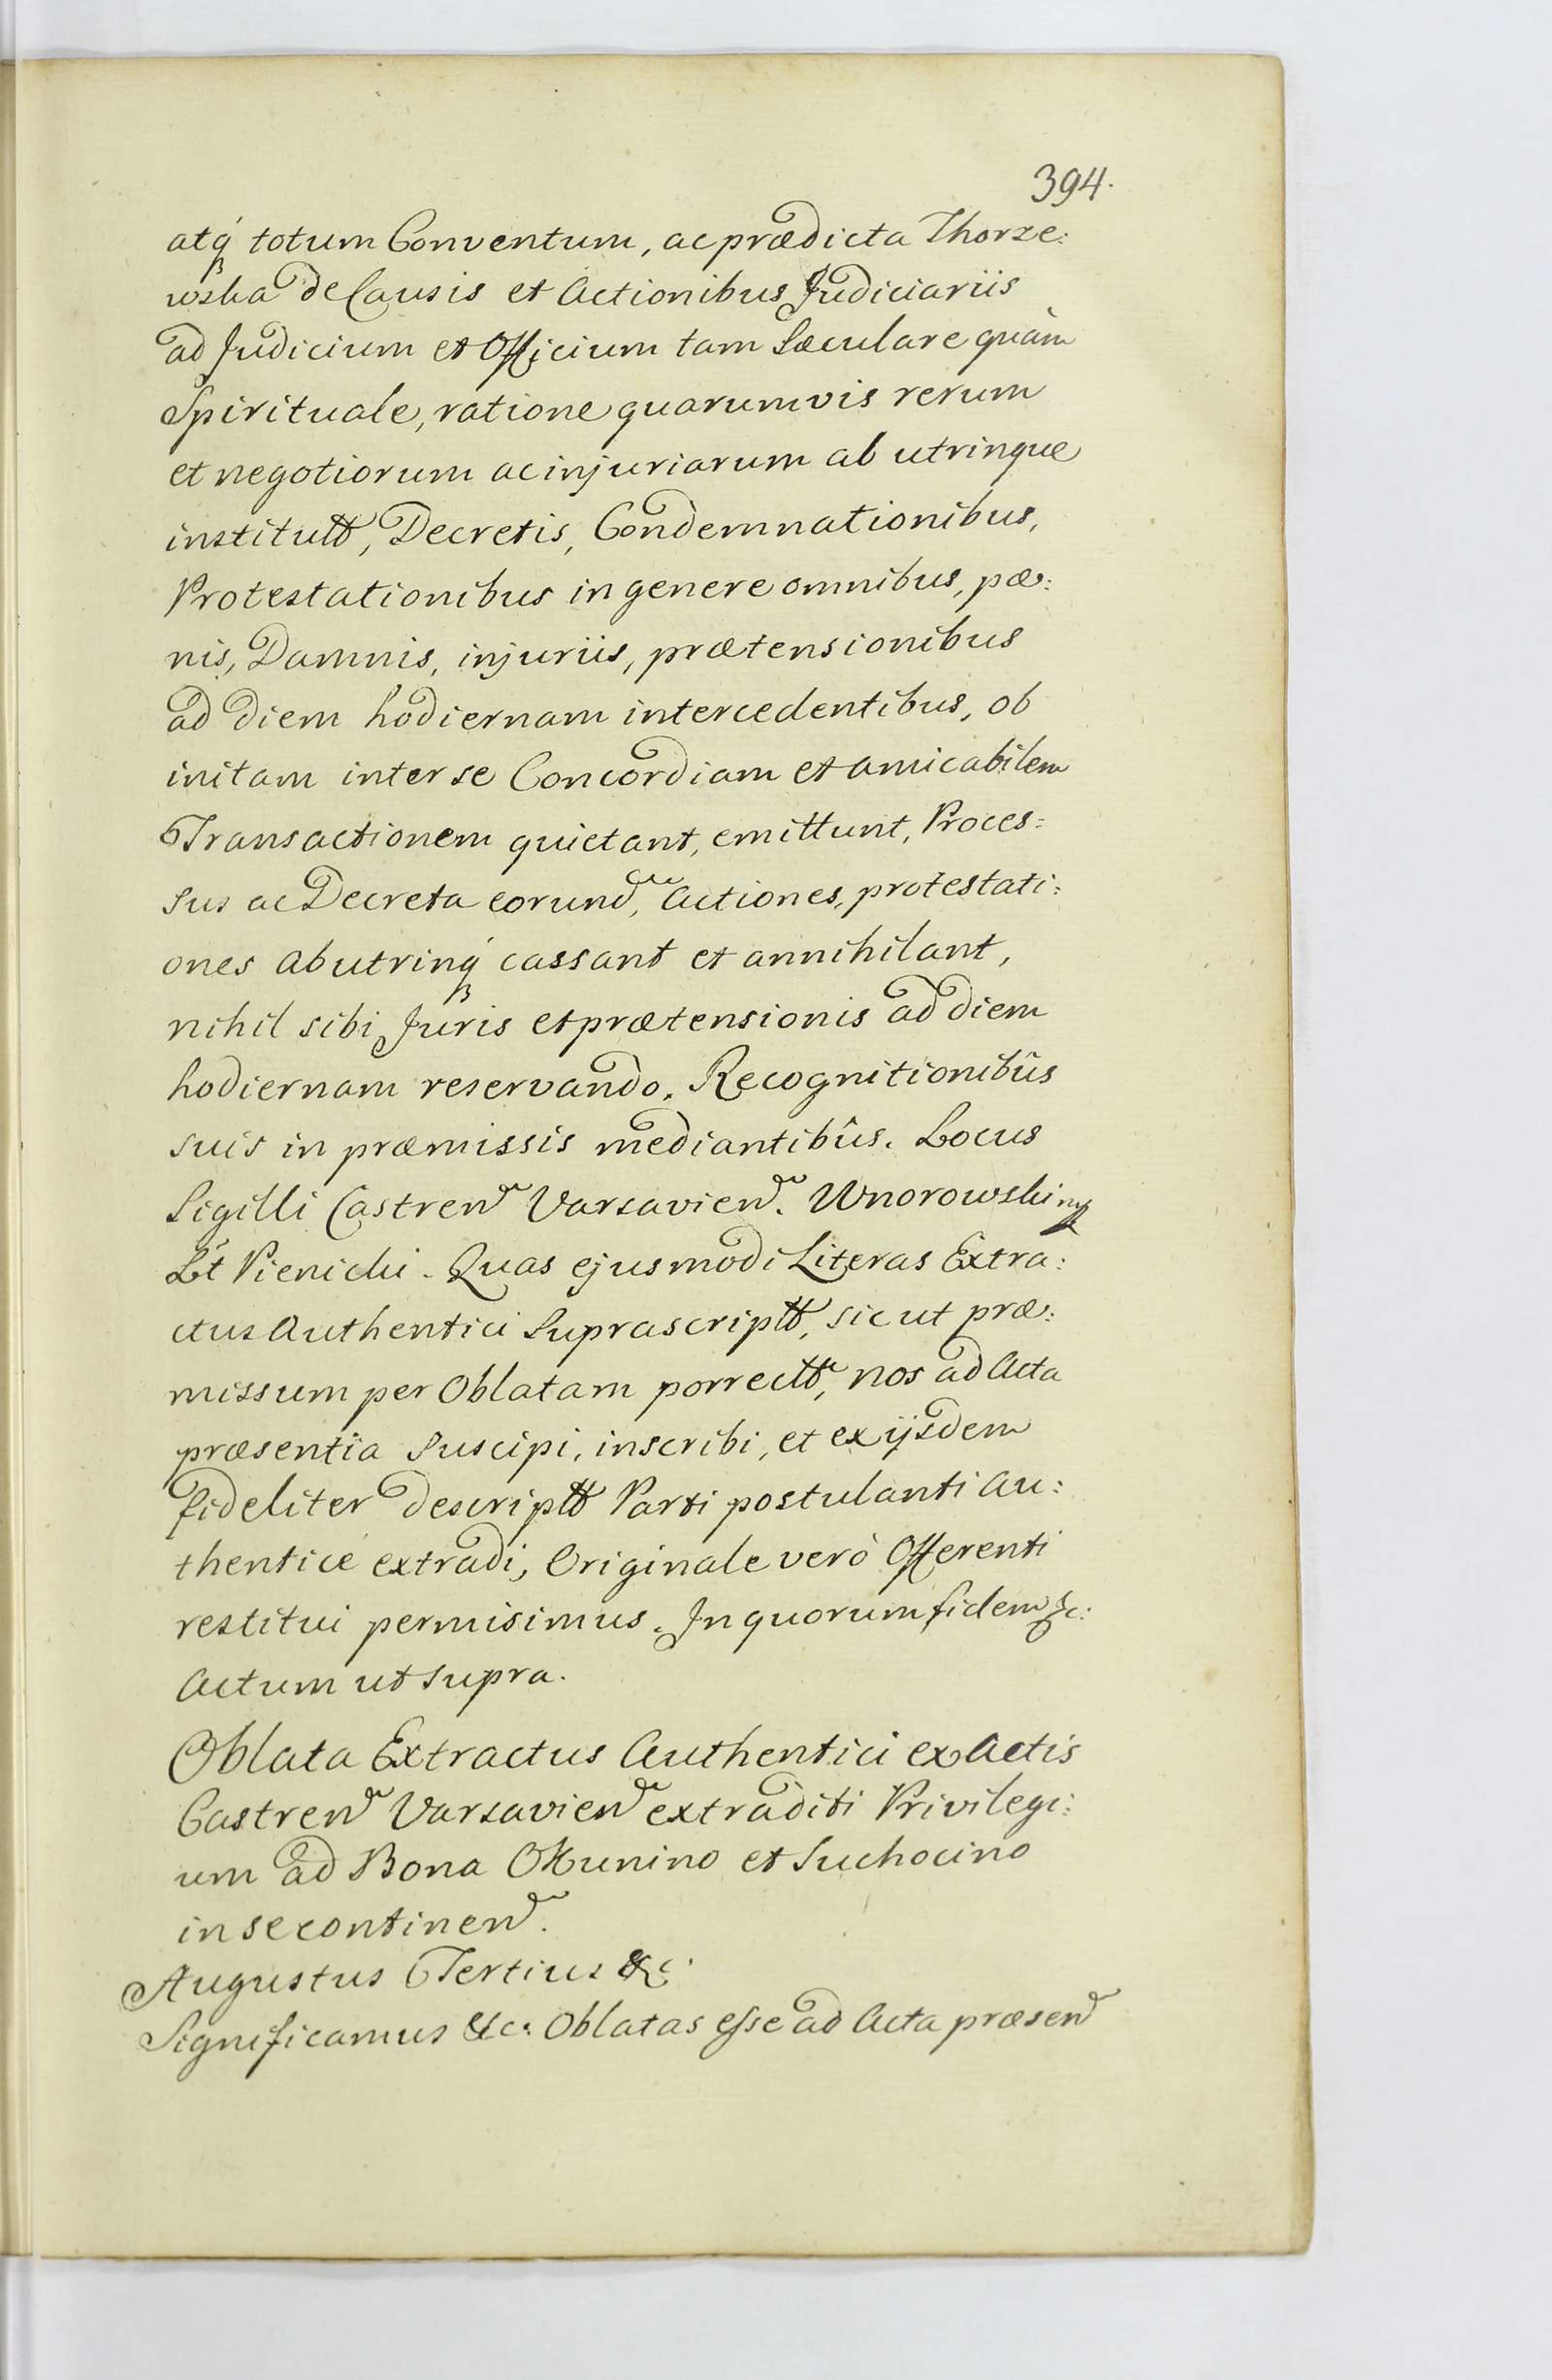 394.
atq́ totum Conventum, ac prædicta Thorze:
wska de Causis et Actionibus Judiciariis
ad Judicium et Officium tam Sæculare quàm
Spirituale, ratione quarumvis rerum
et negotiorum ac injuriarum ab utrinque
institutt, Decretis, Condemnationibus,
Protestationibus in genere omnibus, pæ:
nis, Damnis, injuriis, prætensionibus
ad diem hodiernam intercedentibus, ob
initam inter se Concordiam et amicabilem
Transactionem quietant, emittunt, Proces:
sus ac Decreta eorund, Actiones, protestati:
ones ab utrinq́ cassant et annihilant,
nihil sibi Juris et prætensionis ad diem
hodiernam reservando. Recognitionibûs
suis in præmissis mediantibûs. Locus
Sigilli Castren Varsavien. Wnorowski mp
Lt Pienicki. Quas ejusmodi Literas Extra:
ctus Authentici Suprascriptt, sicut præ:
missum per Oblatam porrectt, nos ad Acta
præsentia Suscipi, inscribi, et ex ijsdem
fideliter descriptt Parti postulanti Au:
thenticè extradi, Originale verò Offerenti
restitui permisimus. In quorum fidem &c:
Actum ut supra.
Oblata Extractus Authentici ex Actis
Castren Varsavien extraditi Privilegi:
um ad Bona Okunino et Suchocino
in se continen.
Augustus Tertius &c:
Significamus &c: Oblatas esse ad Acta præsen